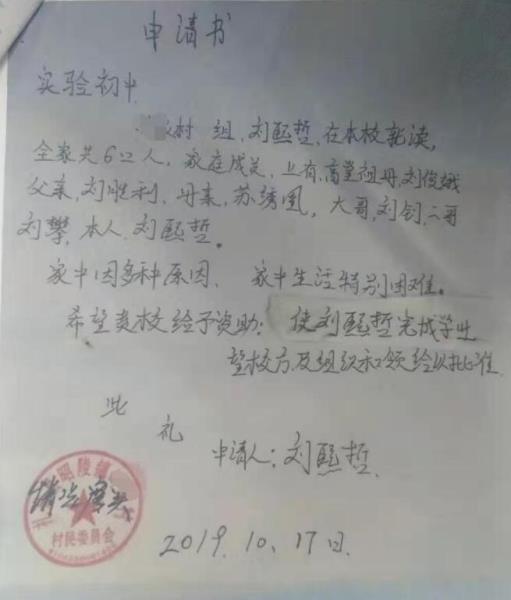 申请书
实验初中
村 组,刘熙哲,在本校就读,
全家共6口人,家庭成关,上有,高堂祖母,刘俊娥
父亲,刘胜利,母亲,苏绣凰,大哥,刘钊,二哥
刘攀,本人,刘熙哲。
家中因多种原因、家中生活特别困难。
希望贵校给予资助:使刘熙哲完成学业
望校方及组织和领给以批准.
此
礼
申请人:刘熙哲.
昭陵镇
情况属实
村民委员会
2019.10.17日.